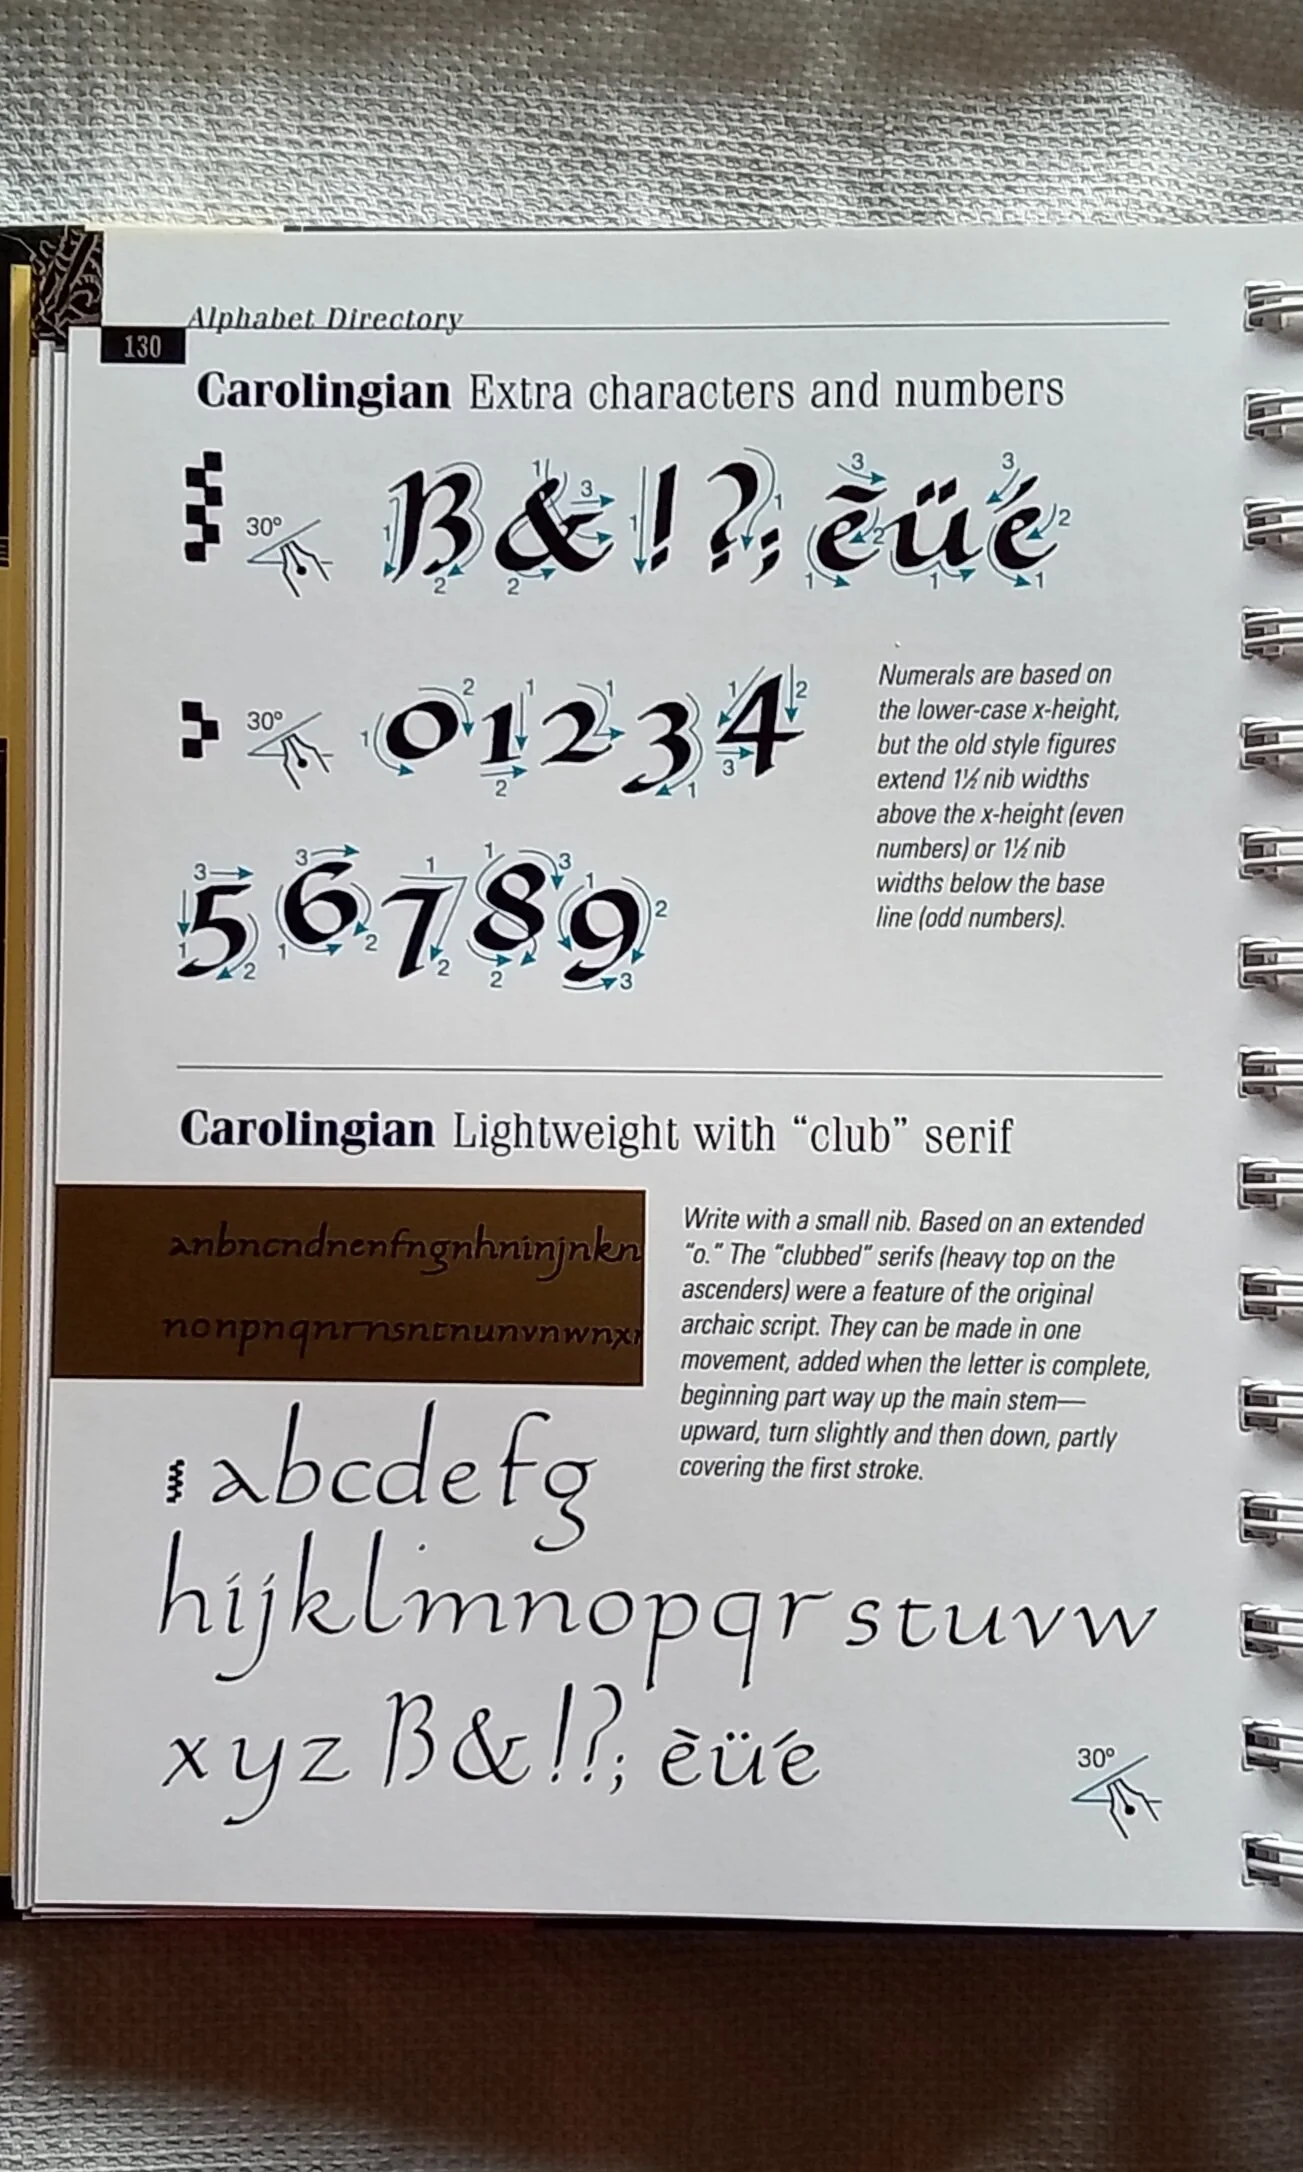 Alphabet Directory
130
Carolingian Extra characters and numbers
30º
ß & ! ? ; ẽ ü é
30º
0 1 2 3 4
Numerals are based on
the lower-case x-height,
but the old style figures
extend 1½ nib widths
above the x-height (even
numbers) or 1½ nib
widths below the base
line (odd numbers).
5 6 7 8 9
Carolingian Lightweight with “club” serif
anbncndnenfngnhninjnkn
nonpnqnrnsntnunvnwnx
Write with a small nib. Based on an extended
“o.” The “clubbed” serifs (heavy top on the
ascenders) were a feature of the original
archaic script. They can be made in one
movement, added when the letter is complete,
beginning part way up the main stem—
upward, turn slightly and then down, partly
covering the first stroke.
a b c d e f g
h i j k l m n o p q r s t u v w
x y z ß & ! ? ; ẽ ü é
30º